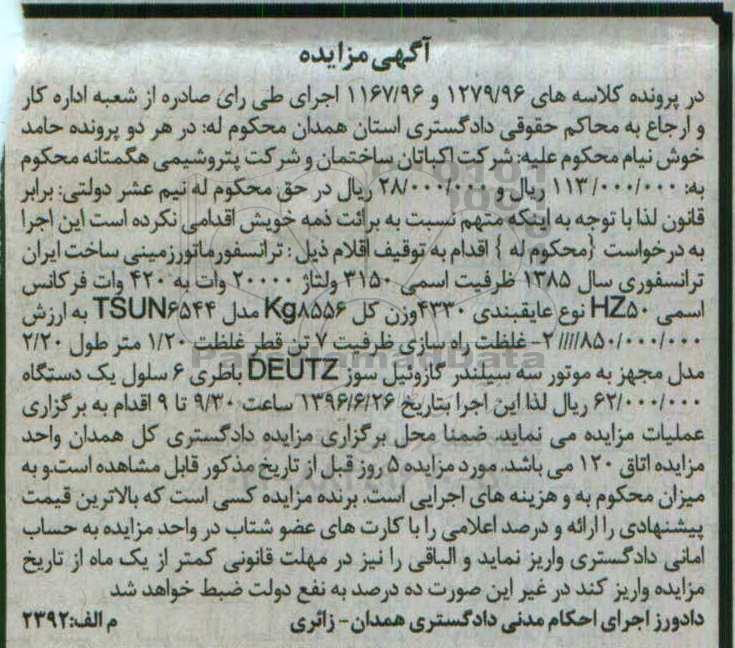 آگهی مزایده
در پرونده کلاسه های ۱۲۷۹/۹۶ و ۱۱۶۷/۹۶ اجرای طی رای صادره از شعبه اداره کار
و ارجاع به محاکم حقوقی دادگستری استان همدان محکوم له: در هر دو پرونده حامد
خوش نیام محکوم علیه: شرکت اکباتان ساختمان و شرکت پتروشیمی هگمتانه محکوم
به: ۱۱۳/۰۰۰/۰۰۰ ریال و ۲۸/۰۰۰/۰۰۰ ریال در حق محکوم له نیم عشر دولتی: برابر
قانون لذا با توجه به اینکه متهم نسبت به برائت ذمه خویش اقدامی نکرده است این اجرا
به درخواست {محکوم له } اقدام به توقیف اقلام ذیل : ترانسفورماتورزمینی ساخت ایران
ترانسفوری سال ۱۳۸۵ ظرفیت اسمی ۳۱۵۰ ولتاژ ۲۰۰۰۰ وات به ۴۲۰ وات فرکانس
اسمی HZ۵۰ نوع عایقبندی ۴۳۳۰وزن کل Kg۸۵۵۶ مدل TSUN۶۵۴۴ به ارزش
۸۵۰/۰۰۰/۰۰۰//// ۲- غلظت راه سازی ظرفیت ۷ تن قطر غلظت ۱/۲۰ متر طول ۲/۲۰
مدل مجهز به موتور سه سیلندر گازوئیل سوز DEUTZ باطری ۶ سلول یک دستگاه
۶۲/۰۰۰/۰۰۰ ریال لذا این اجرا بتاریخ ۱۳۹۶/۶/۲۶ ساعت ۹/۳۰ تا ۹ اقدام به برگزاری
عملیات مزایده می نماید. ضمنا محل برگزاری مزایده دادگستری کل همدان واحد
مزایده اتاق ۱۲۰ می باشد. مورد مزایده ۵ روز قبل از تاریخ مذکور قابل مشاهده است.و به
میزان محکوم به و هزینه های اجرایی است. برنده مزایده کسی است که بالاترین قیمت
پیشنهادی را ارائه و درصد اعلامی را با کارت های عضو شتاب در واحد مزایده به حساب
امانی دادگستری واریز نماید و الباقی را نیز در مهلت قانونی کمتر از یک ماه از تاریخ
مزایده واریز کند در غیر این صورت ده درصد به نفع دولت ضبط خواهد شد
دادورز اجرای احکام مدنی دادگستری همدان- زائری م الف:۲۳۹۲